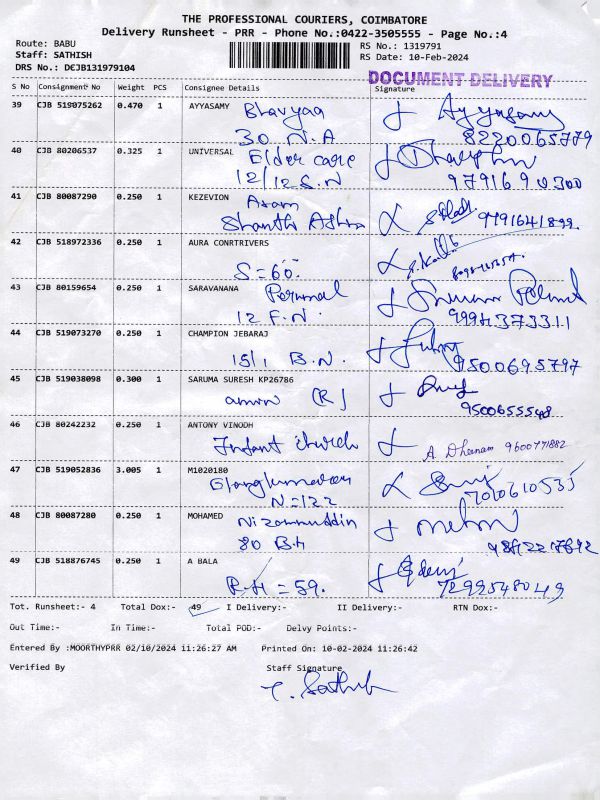 THE PROFESSIONAL COURIERS, COIMBATORE
Delivery Runsheet - PRR - Phone No.:0422-3505555 - Page No.:4
Route: BABU
Staff: SATHISH
DRS No.: DCJB131979104
RS No.: 1319791
RS Date: 10-Feb-2024
DOCUMENT DELIVERY
S No Consignment No Weight PCS Consignee Details Signature
39 CJB 519075262 0.470 1 AYYASAMY Bhavyaa Ayyasamy
30 N.A 8220065779
40 CJB 80206537 0.325 1 UNIVERSAL Elder care
12/12 S.N
41 CJB 80087290 0.250 1 KEZEVION Asam
Shanthi 9791641899
42 CJB 518972336 0.250 1 AURA CONRTRIVERS
S=60.
43 CJB 80159654 0.250 1 SARAVANANA Perumal
12 F.N.
44 CJB 519073270 0.250 1 CHAMPION JEBARAJ
15/1 B.N. 9500695797
45 CJB 519038098 0.300 1 SARUMA SURESH KP26786
(R) 9500655548
46 CJB 80242232 0.250 1 ANTONY VINODH
Infant church A Dheenam 9600771882
47 CJB 519052836 3.005 1 M1020180
Elangkumaran 7010610535
N=122
48 CJB 80087280 0.250 1 MOHAMED Nizammuddin
80 B.H
49 CJB 518876745 0.250 1 A BALA
R.H = 59. 7299548049
Tot. Runsheet:- 4 Total Dox:- 49 I Delivery:- II Delivery:- RTN Dox:-
Out Time:- In Time:- Total POD:- Delvy Points:-
Entered By :MOORTHYPRR 02/10/2024 11:26:27 AM Printed On: 10-02-2024 11:26:42
Verified By Staff Signature